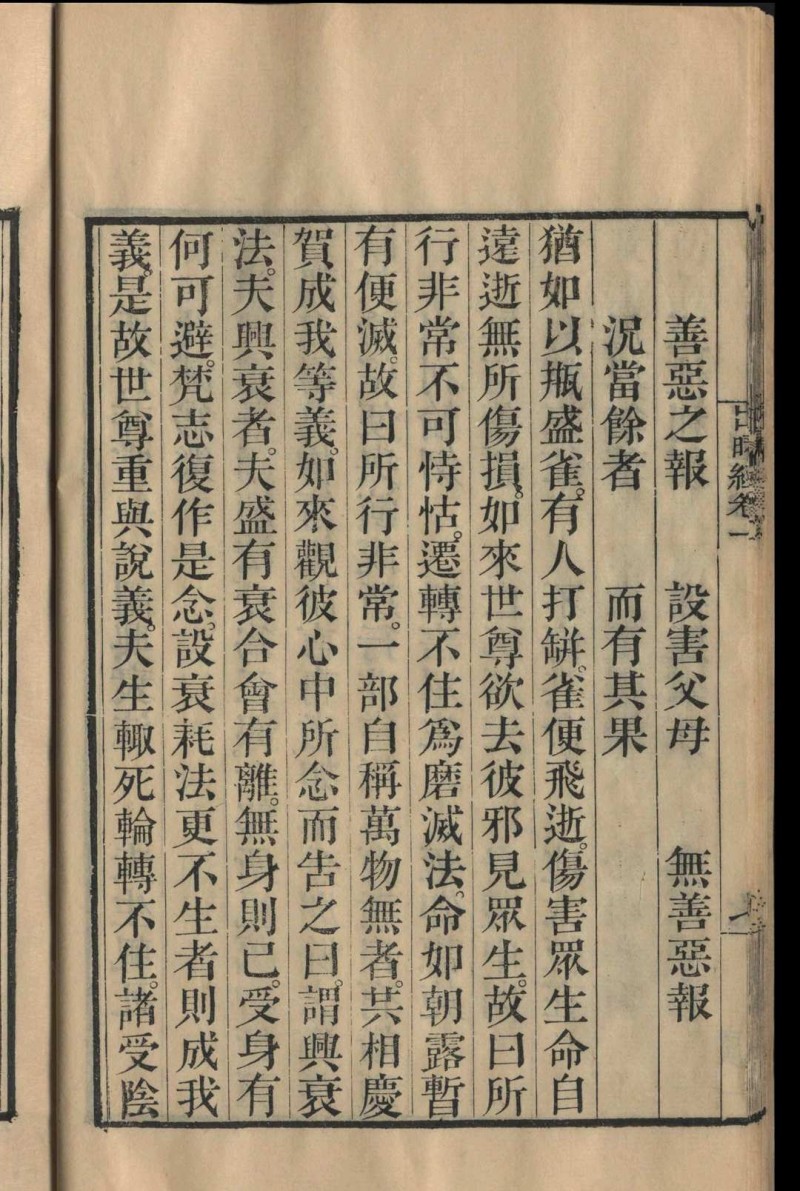 善惡之報　設害父母　無善惡報
況當餘者　而有其果
猶如以瓶盛雀。有人打缾。雀便飛逝。傷害眾生命自
遠逝無所傷損。如來世尊欲去彼邪見眾生。故曰所
行非常不可恃怙。遷轉不住爲磨滅法。命如朝露暫
有便滅。故曰所行非常。一部自稱萬物無者。共相慶
賀成我等義。如來觀彼心中所念而告之曰。謂興衰
法。夫興衰者。夫盛有衰合會有離。無身則已。受身有
何可避。梵志復作是念。設衰耗法更不生者則成我
義。是故世尊重與說義。夫生輙死輪轉不住。諸受陰